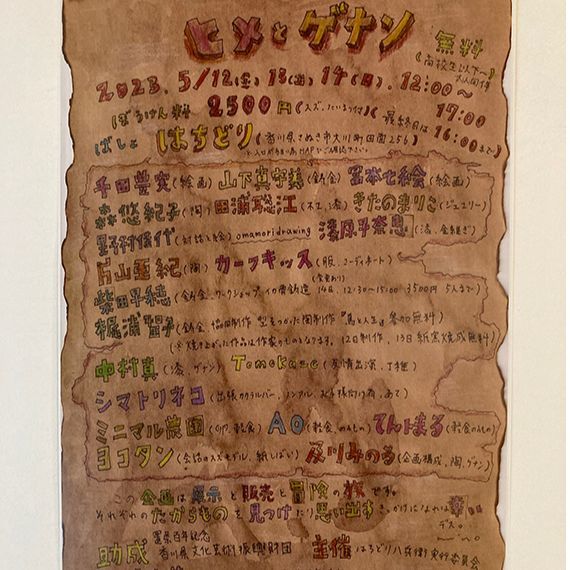 ヒメとゲナン
無料
(高校生以下〜大人同伴)
2023. 5/12(金) 13(土) 14(日). 12:00〜17:00
ぼうけん料 2500円(スズ、たいまつ付)(最終日は16:00まで)
ばしょ はちどり(香川県さぬき市大川町田面256)
千田豊実(絵画) 山下真守美(鈑金) 宮本七絵(絵画)
森悠紀子(陶) 田浦聡江(木工、漆) きたのまりこ(ジュエリー)
野村佳代(対話と絵) omamoridrawing 漆原早奈恵(漆、金継ぎ)
片山亜紀(陶) カーフキッス(服、コーディネート)
柴田早穂(鋳金、ワークショップ、イカ墨鋳造 14日、12:30〜15:00 3500円 5人まで)
梶浦(鈑金、協同制作 型をつかった陶制作『鳥と人生』参加無料)
(※焼き上がった作品は作家のものとなります。12日制作、13日紙窯焼成無料)
中村真(漆、ゲナン) Tomokaze(友情出演、丁稚)
シマトリネコ(出張カクテルバー、ノンアル、お子様向け有、あて)
ミニマル農園(CP、軽食) AO(軽食、のみもの) てんトまる(軽食のみもの)
ヨコタン(会話のスズモデル、紙しばい) 及川みのる(企画構成、陶、ゲナン)
この企画は展示と販売と冒険の旅です。
それぞれのたからものを見つけたり思い出すきっかけになれば幸いデス。
助成 置県百年記念 香川県文化芸術振興財団 主催 はちどり八兵衛実行委員会